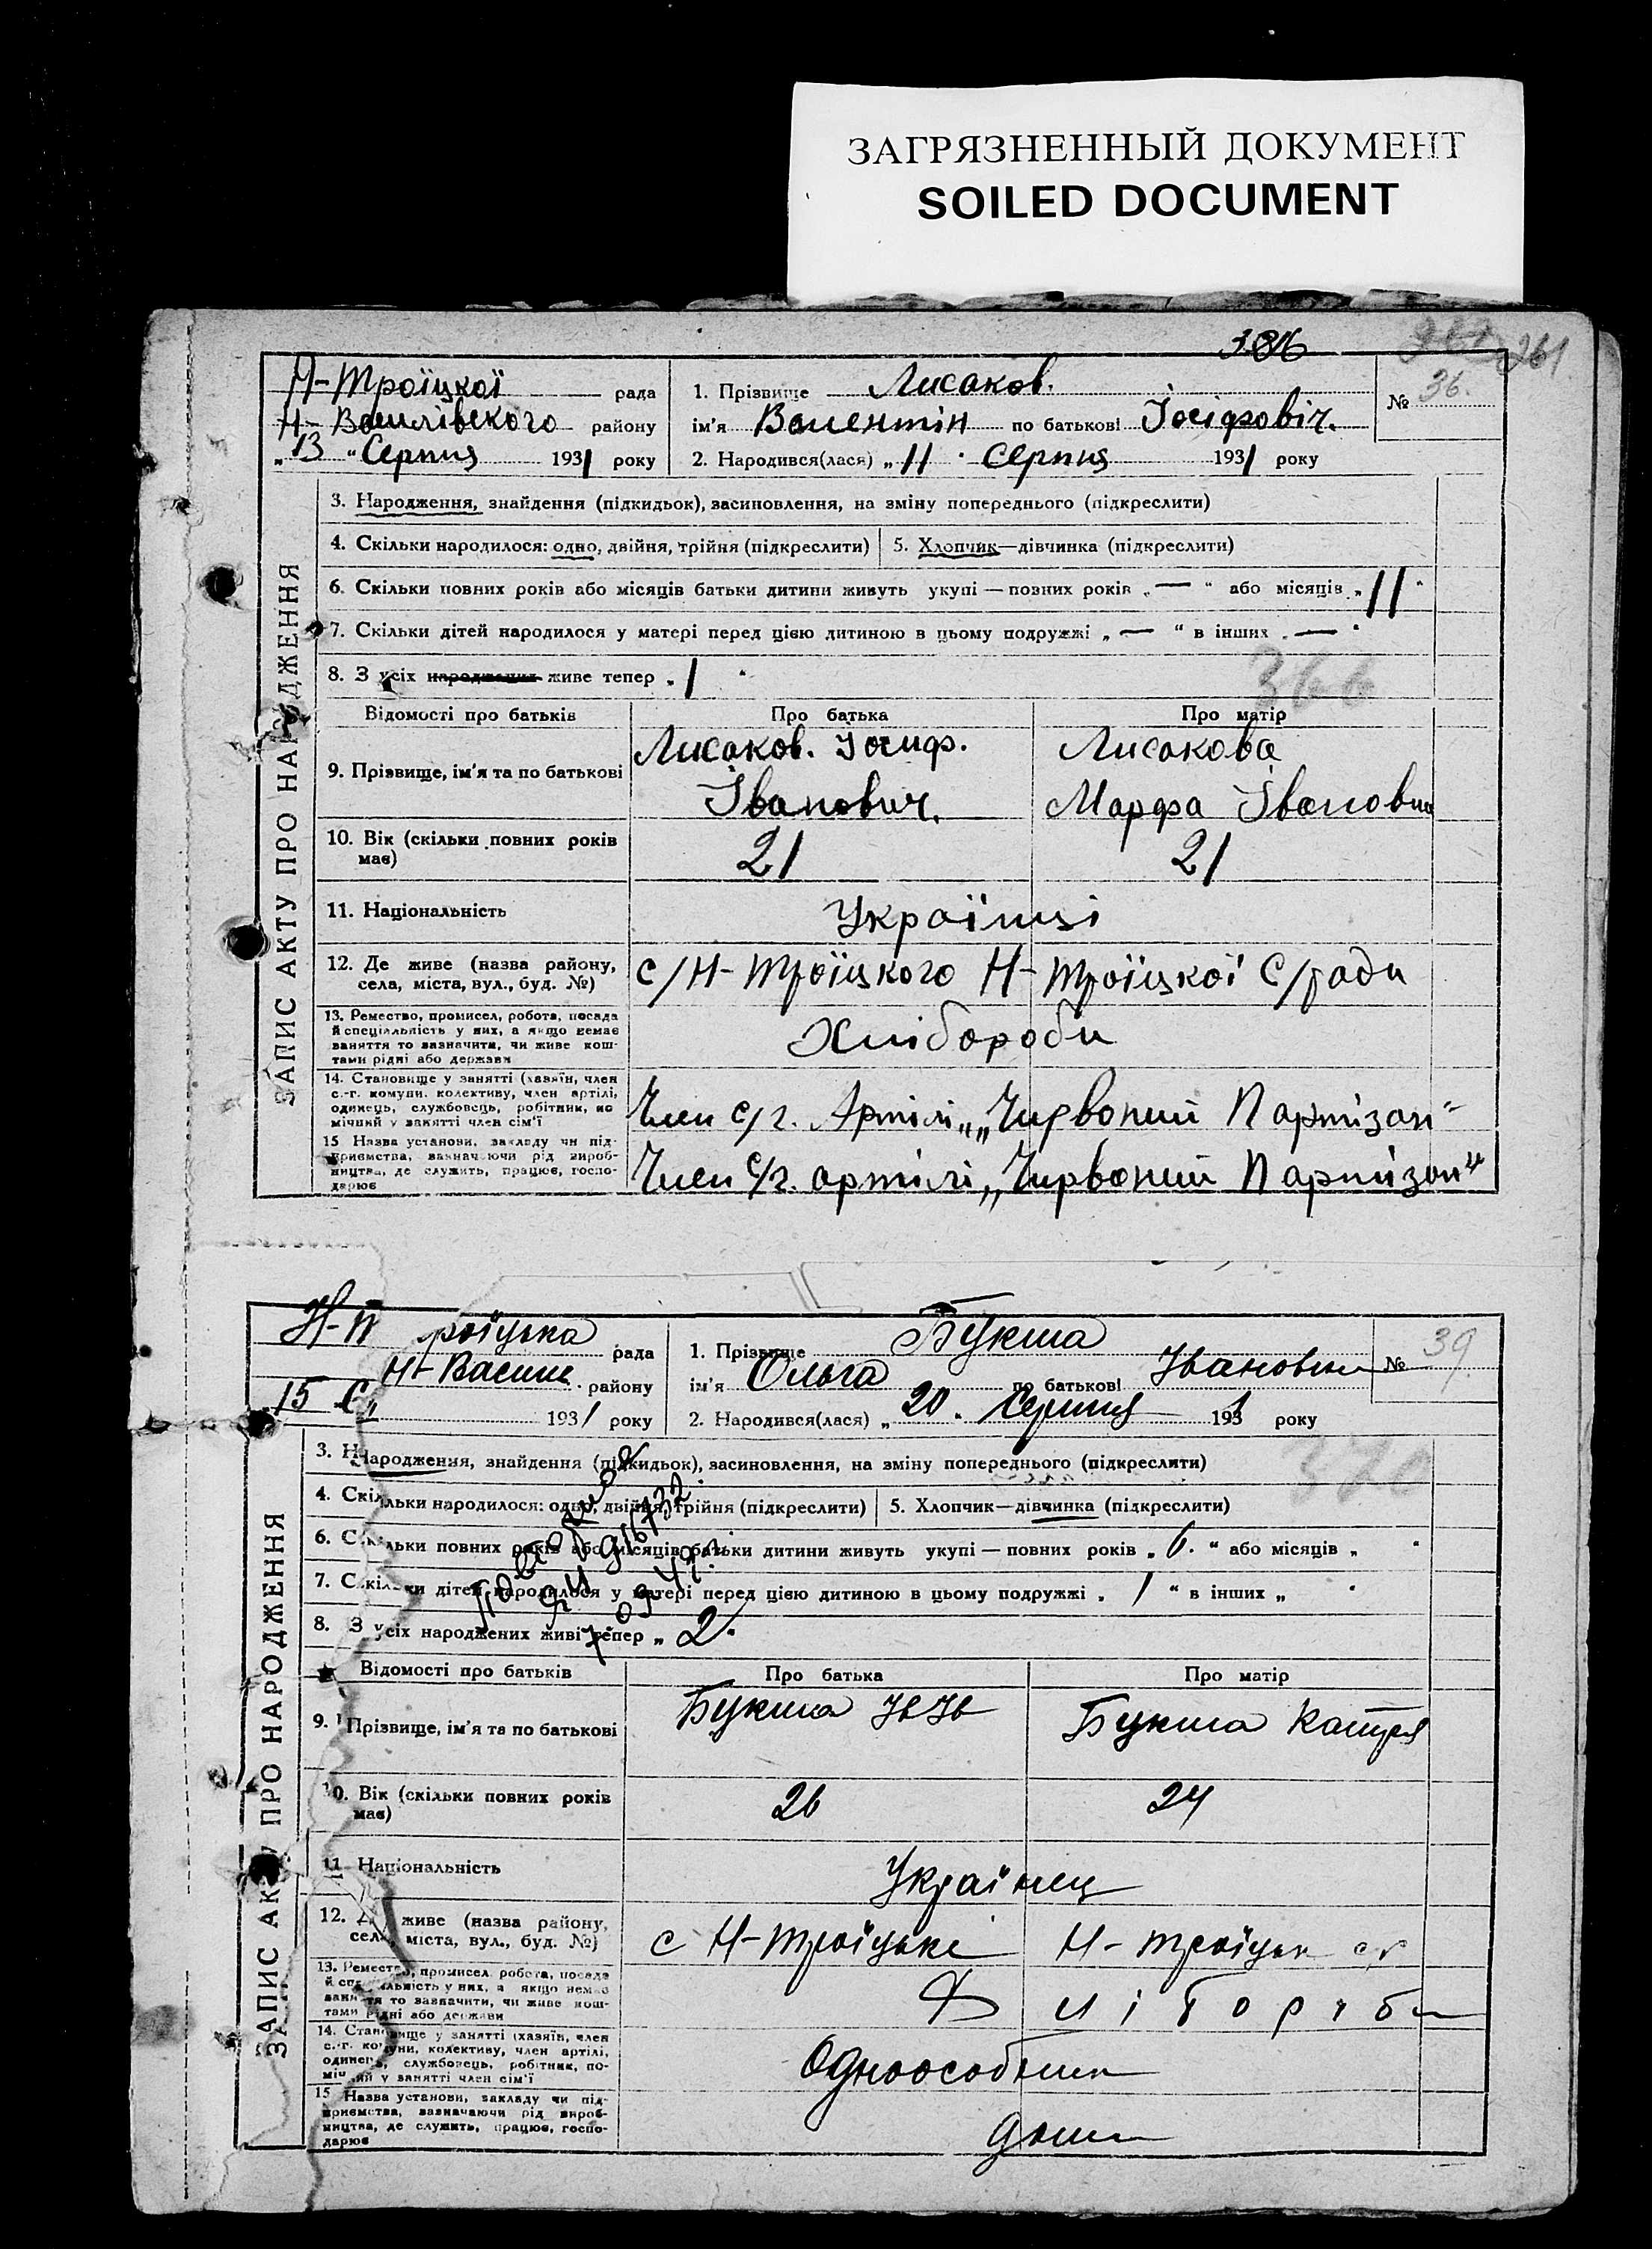 ЗАГРЯЗНЕННЫЙ ДОКУМЕНТ
SOILED DOCUMENT
261
Н-Троїцкої рада
1. Прізвище Лисаков.
№ 36.
Н-Василівского району
ім'я Валентін по батькові Іосіфовіч.
„13 " Серпня 1931 року
2. Народився(лася) „11 " Серпня 1931 року
ЗАПИС АКТУ ПРО НАРОДЖЕННЯ
3. Народження, знайдення (підкидьок), засиновлення, на зміну попереднього (підкреслити)
4. Скільки народилося: одно, двійня, трійня (підкреслити)
5. Хлопчик—дівчинка (підкреслити)
6. Скільки повних років або місяців батьки дитини живуть укупі — повних років „ — " або місяців „ 11 "
7. Скільки дітей народилося у матері перед цією дитиною в цьому подружжі „ — " в інших „ — "
8. З усіх народжених живе тепер „ 1 "
366
Відомості про батьків
Про батька
Про матір
9. Прізвище, ім'я та по батькові
Лисаков. Іосиф.
Іванович.
Лисакова
Марфа Івановна
10. Вік (скільки повних років має)
21
21
11. Національність
Українці
12. Де живе (назва району,
села, міста, вул., буд. №)
с/Н-Троїцкого Н-Троїцкої С/ради
13. Ремество, промисел, робота, посада
й спеціяльність у них, а якщо немає
заняття то зазначити, чи живе кош-
тами рідні або держави
Хлібороби
14. Становище у занятті (хазяїн, член
с.-г. комуни, колективу, член артілі,
одинець, службовець, робітник, по
мічний у занятті член сім'ї
Член с/г. Артілі „„Чирвоний Партізан"
15 Назва установи, закладу чи під-
приємства, зазначаючи рід вироб-
ництва, де служить, працює, госпо-
дарює
Член с/г. артілі „Чирвоний Партізан"
Н-Троїцька рада
1. Прізвище Букша
№ 39
Н-Васил. району
ім'я Ольга по батькові Івановна
15 С„ 1931 року
2. Народився(лася) „ 20. Серпня 1931 року
ЗАПИС АКТУ ПРО НАРОДЖЕННЯ
3. Народження, знайдення (підкидьок), засиновлення, на зміну попереднього (підкреслити)
370
4. Скільки народилося: одно, двійня, трійня (підкреслити)
5. Хлопчик—дівчинка (підкреслити)
6. Скільки повних років або місяців батьки дитини живуть укупі — повних років „ 6. " або місяців „ "
7. Скільки дітей народилося у матері перед цією дитиною в цьому подружжі „ 1 " в інших „ "
8. З усіх народжених живі тепер „ 2.
Відомості про батьків
Про батька
Про матір
9. Прізвище, ім'я та по батькові
Букша Ів Ів
Букша Катря
10. Вік (скільки повних років має)
26
24
11 Національність
Українец
12. Де живе (назва району,
села, міста, вул., буд. №)
с Н-Троїцькі Н-Троїцьк ср
13. Ремество, промисел, робота, посада
й спеціяльність у них, а якщо немає
заняття то зазначити, чи живе кош-
тами рідні або держави
Хлібороби
14. Становище у занятті (хазяїн, член
с.-г. комуни, колективу, член артілі,
одинець, службовець, робітник, по-
мічний у занятті член сім'ї
Одноособник
15 Назва установи, закладу чи під-
приємства, зазначаючи рід вироб-
ництва, де служить, працює, госпо-
дарює